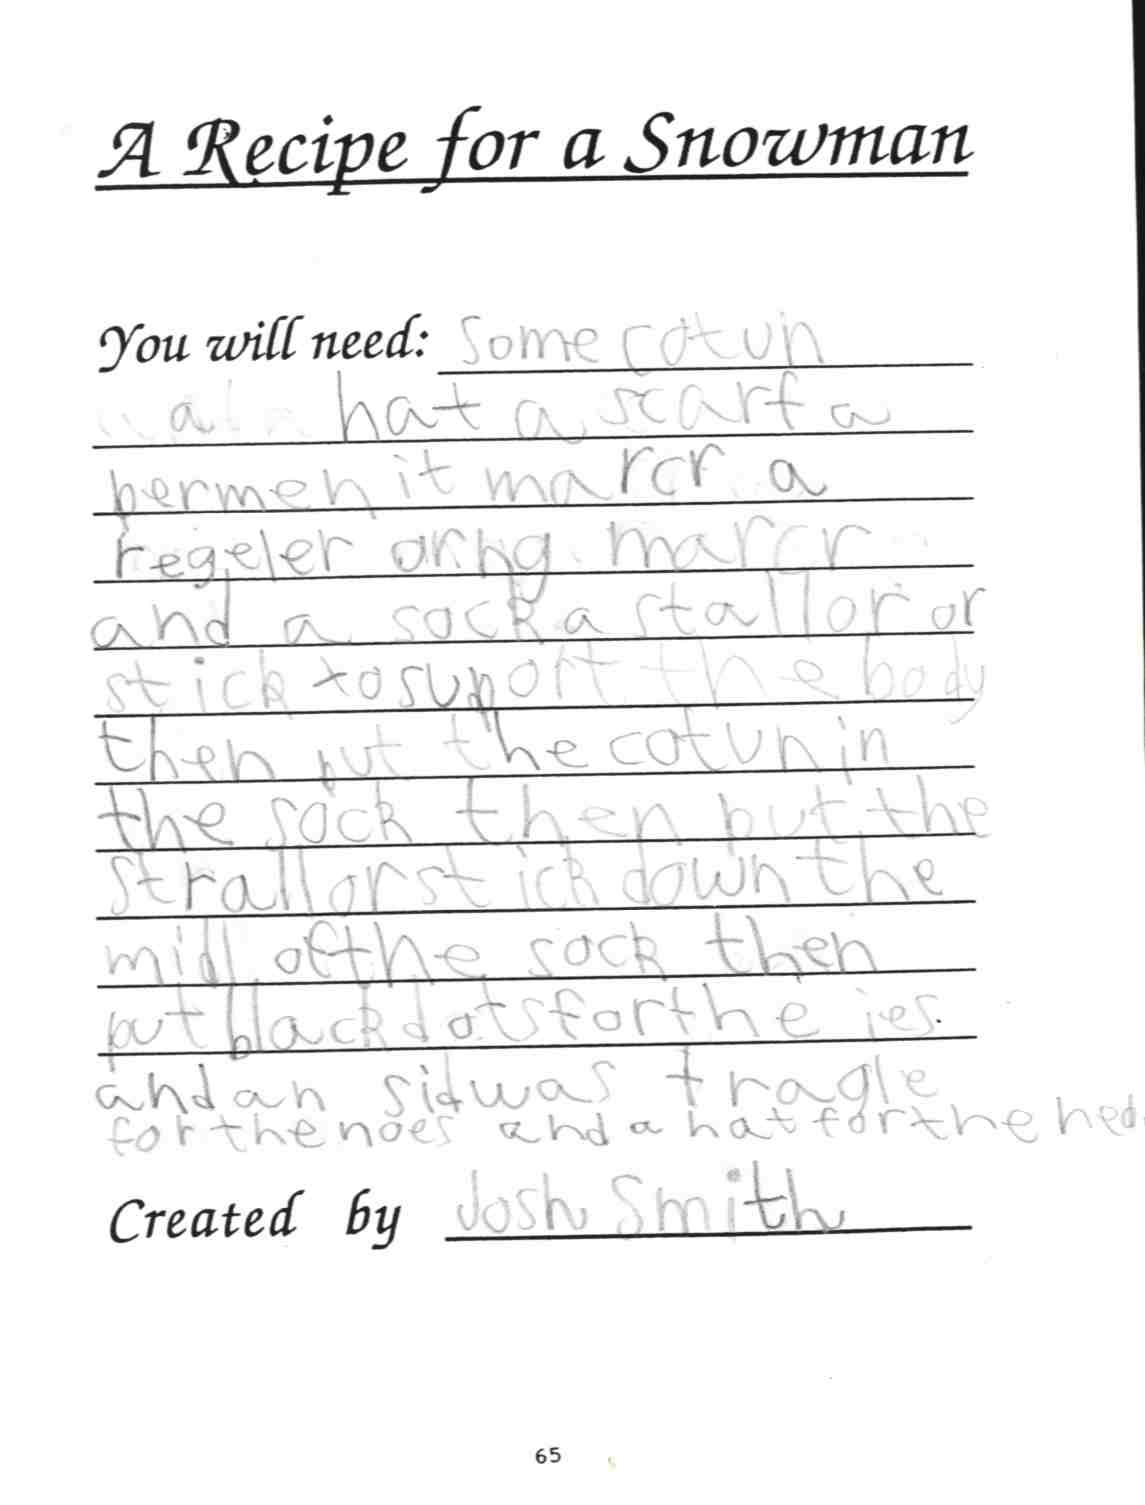 A Recipe for a Snowman
You will need: Some cotun
a hat a scarf a
permenit marcr a
regeler orhg marcr
and a sock a stallor or
stick to suport the body
then put the cotun in
the sock then put the
strall or stick down the
midl of the sock then
put black dots for the ies.
and an sidwas tragle
for the noes and a hat for the hed.
Created by Josh Smith
65